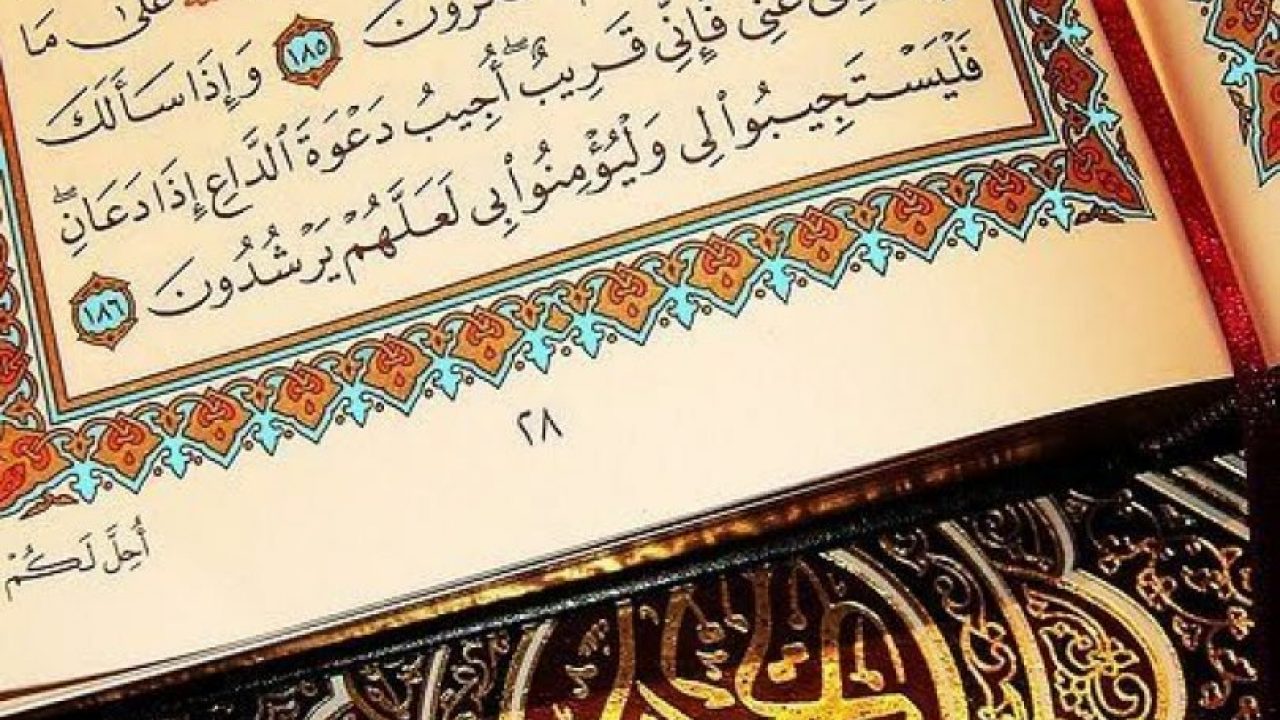 عَلَىٰ مَا
١٨٥ وَإِذَا سَأَلَكَ
عَنِّي فَإِنِّي قَرِيبٌ ۖ أُجِيبُ دَعْوَةَ ٱلدَّاعِ إِذَا دَعَانِ ۖ
فَلْيَسْتَجِيبُوا۟ لِي وَلْيُؤْمِنُوا۟ بِي لَعَلَّهُمْ يَرْشُدُونَ ١٨٦
٢٨
أُحِلَّ لَكُمْ